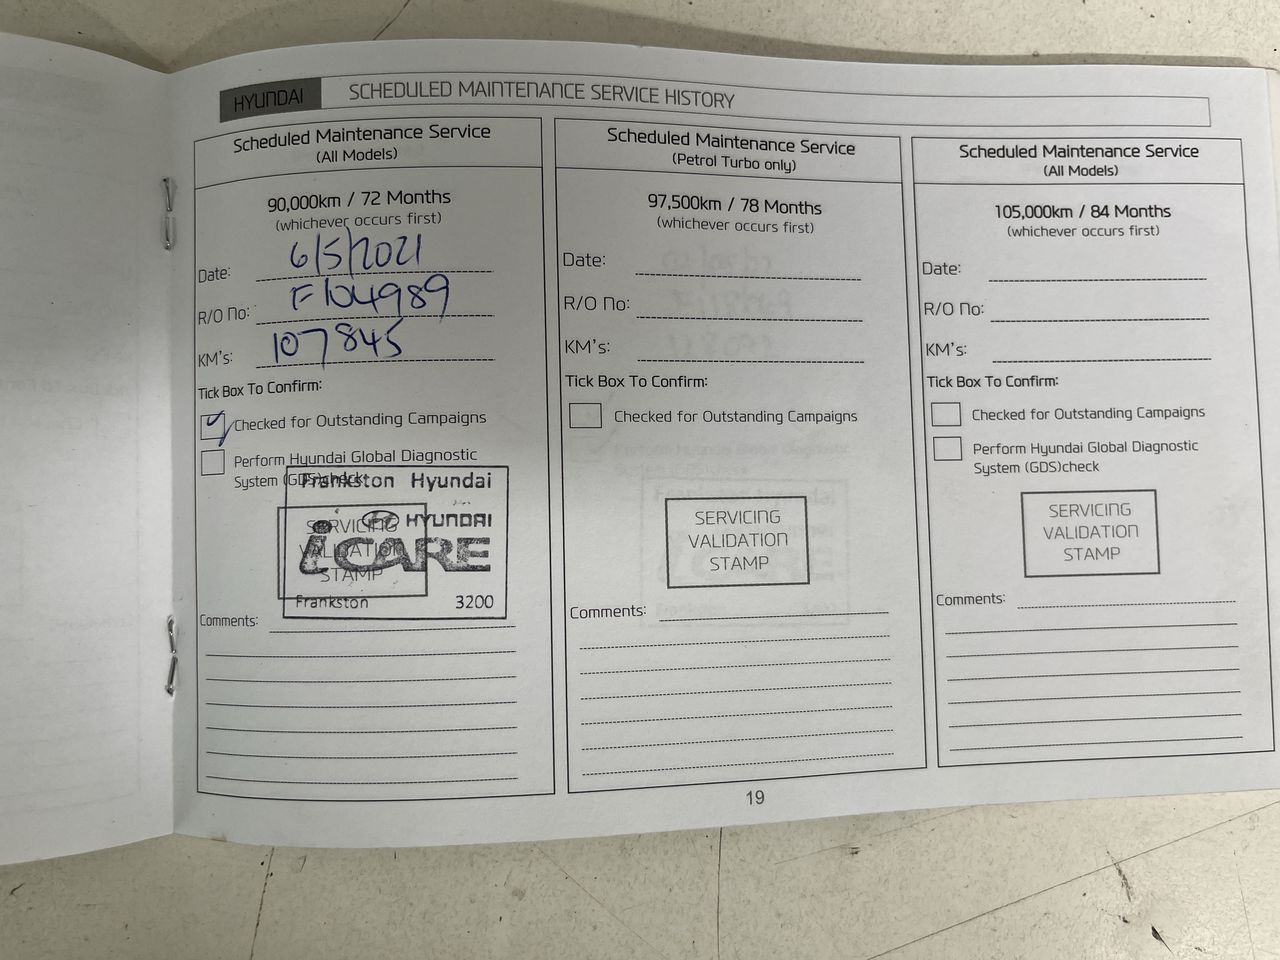 HYUNDAI SCHEDULED MAINTENANCE SERVICE HISTORY
Scheduled Maintenance Service
(All Models)
90,000km / 72 Months
(whichever occurs first)
Date: 6/5/2021
R/O No: F104989
KM's: 107845
Tick Box To Confirm:
Checked for Outstanding Campaigns
Perform Hyundai Global Diagnostic
System (GDS)check
Frankston Hyundai
SERVICING
VALIDATION
STAMP
HYUNDAI
iCARE
Frankston 3200
Comments:
Scheduled Maintenance Service
(Petrol Turbo only)
97,500km / 78 Months
(whichever occurs first)
Date:
R/O No:
KM's:
Tick Box To Confirm:
Checked for Outstanding Campaigns
SERVICING
VALIDATION
STAMP
Comments:
Scheduled Maintenance Service
(All Models)
105,000km / 84 Months
(whichever occurs first)
Date:
R/O No:
KM's:
Tick Box To Confirm:
Checked for Outstanding Campaigns
Perform Hyundai Global Diagnostic
System (GDS)check
SERVICING
VALIDATION
STAMP
Comments:
19